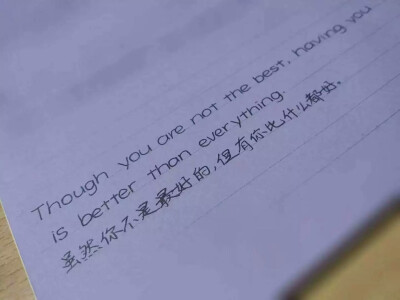 Though you are not the best, having you
is better than everything.
虽然你不是最好的,但有你比什么都好.